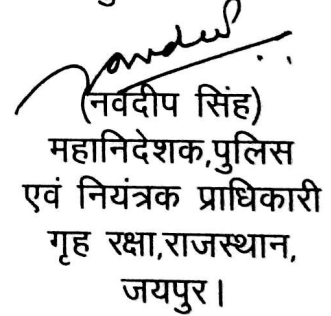 (नवदीप सिंह)
महानिदेशक,पुलिस
एवं नियंत्रक प्राधिकारी
गृह रक्षा,राजस्थान,
जयपुर।